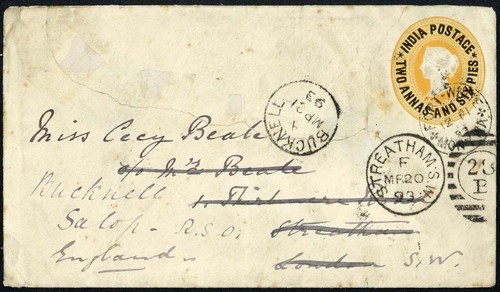 ★ INDIA POSTAGE ★
TWO ANNAS AND SIX PIES
BUCKNELL
MR 21
93
Miss Cecy Beale
c/o Mrs Beale
Bucknell
Salop - R.S.O.
Streatham
England
London S.W.
STREATHAM.S.W
F
MR 20
93
B